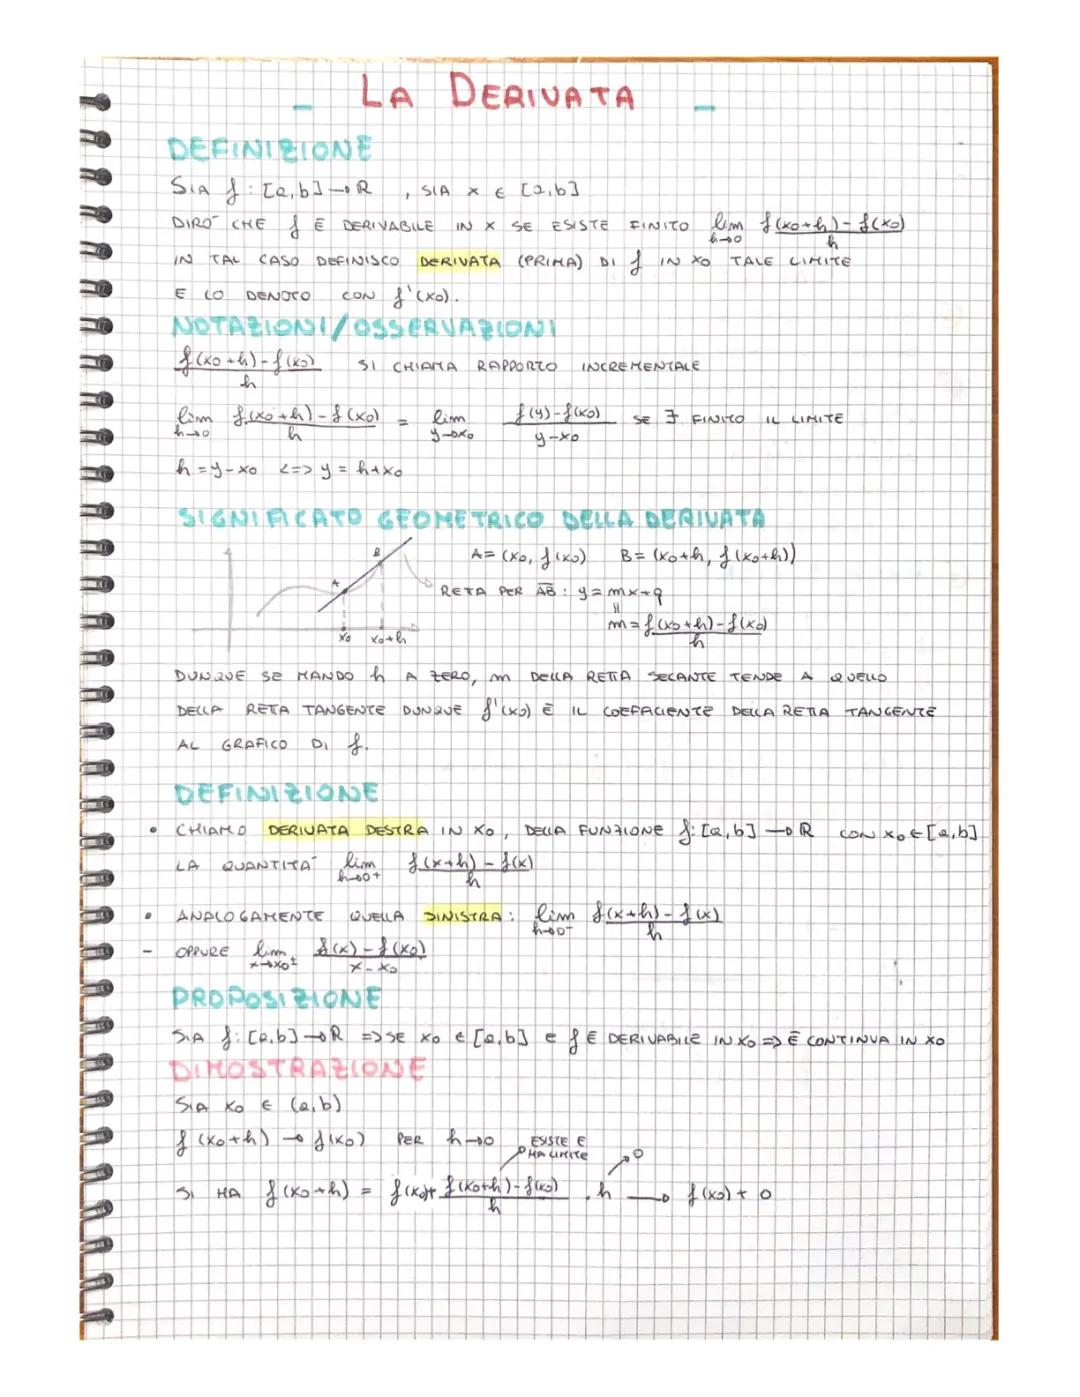 LA DERIVATA
DEFINIZIONE
SIA f: [a,b] → R , SIA x ∈ [a,b]
DIRO' CHE f È DERIVABILE IN X SE ESISTE FINITO lim h→0 f(x0+h)-f(x0) / h
IN TAL CASO DEFINISCO DERIVATA (PRIMA) DI f IN X0 TALE LIMITE
E LO DENOTO CON f'(x0).
NOTAZIONI/OSSERVAZIONI
f(x0+h)-f(x0) / h SI CHIAMA RAPPORTO INCREMENTALE
lim h→0 f(x0+h)-f(x0) / h = lim y→x0 f(y)-f(x0) / y-x0 SE ∃ FINITO IL LIMITE
h = y-x0 <=> y = h+x0
SIGNIFICATO GEOMETRICO DELLA DERIVATA
A= (x0, f(x0)) B= (x0+h, f(x0+h))
B
A
RETA PER AB: y = mx+q
m = f(x0+h)-f(x0) / h
x0 x0+h
DUNQUE SE MANDO h A ZERO, m DELLA RETTA SECANTE TENDE A QUELLO
DELLA RETA TANGENTE DUNQUE f'(x0) È IL COEFFACIENTE DELLA RETTA TANGENTE
AL GRAFICO DI f.
DEFINIZIONE
• CHIAMO DERIVATA DESTRA IN X0, DELLA FUNZIONE f: [a,b] → R CON x0 ∈ [a,b]
LA QUANTITA' lim h→0+ f(x+h) - f(x) / h
• ANALOGAMENTE QUELLA SINISTRA: lim h→0- f(x+h) - f(x) / h
- OPPURE lim x→x0± f(x) - f(x0) / x-x0
PROPOSIZIONE
SIA f: [a,b] → R => SE x0 ∈ [a,b] e f È DERIVABILE IN X0 => È CONTINUA IN X0
DIMOSTRAZIONE
SIA X0 ∈ (a,b)
f(x0+h) → f(x0) PER h→0
ESISTE E
HA LIMITE
0
SI HA f(x0+h) = f(x0)+ f(x0+h)-f(x0) / h . h → f(x0) + 0